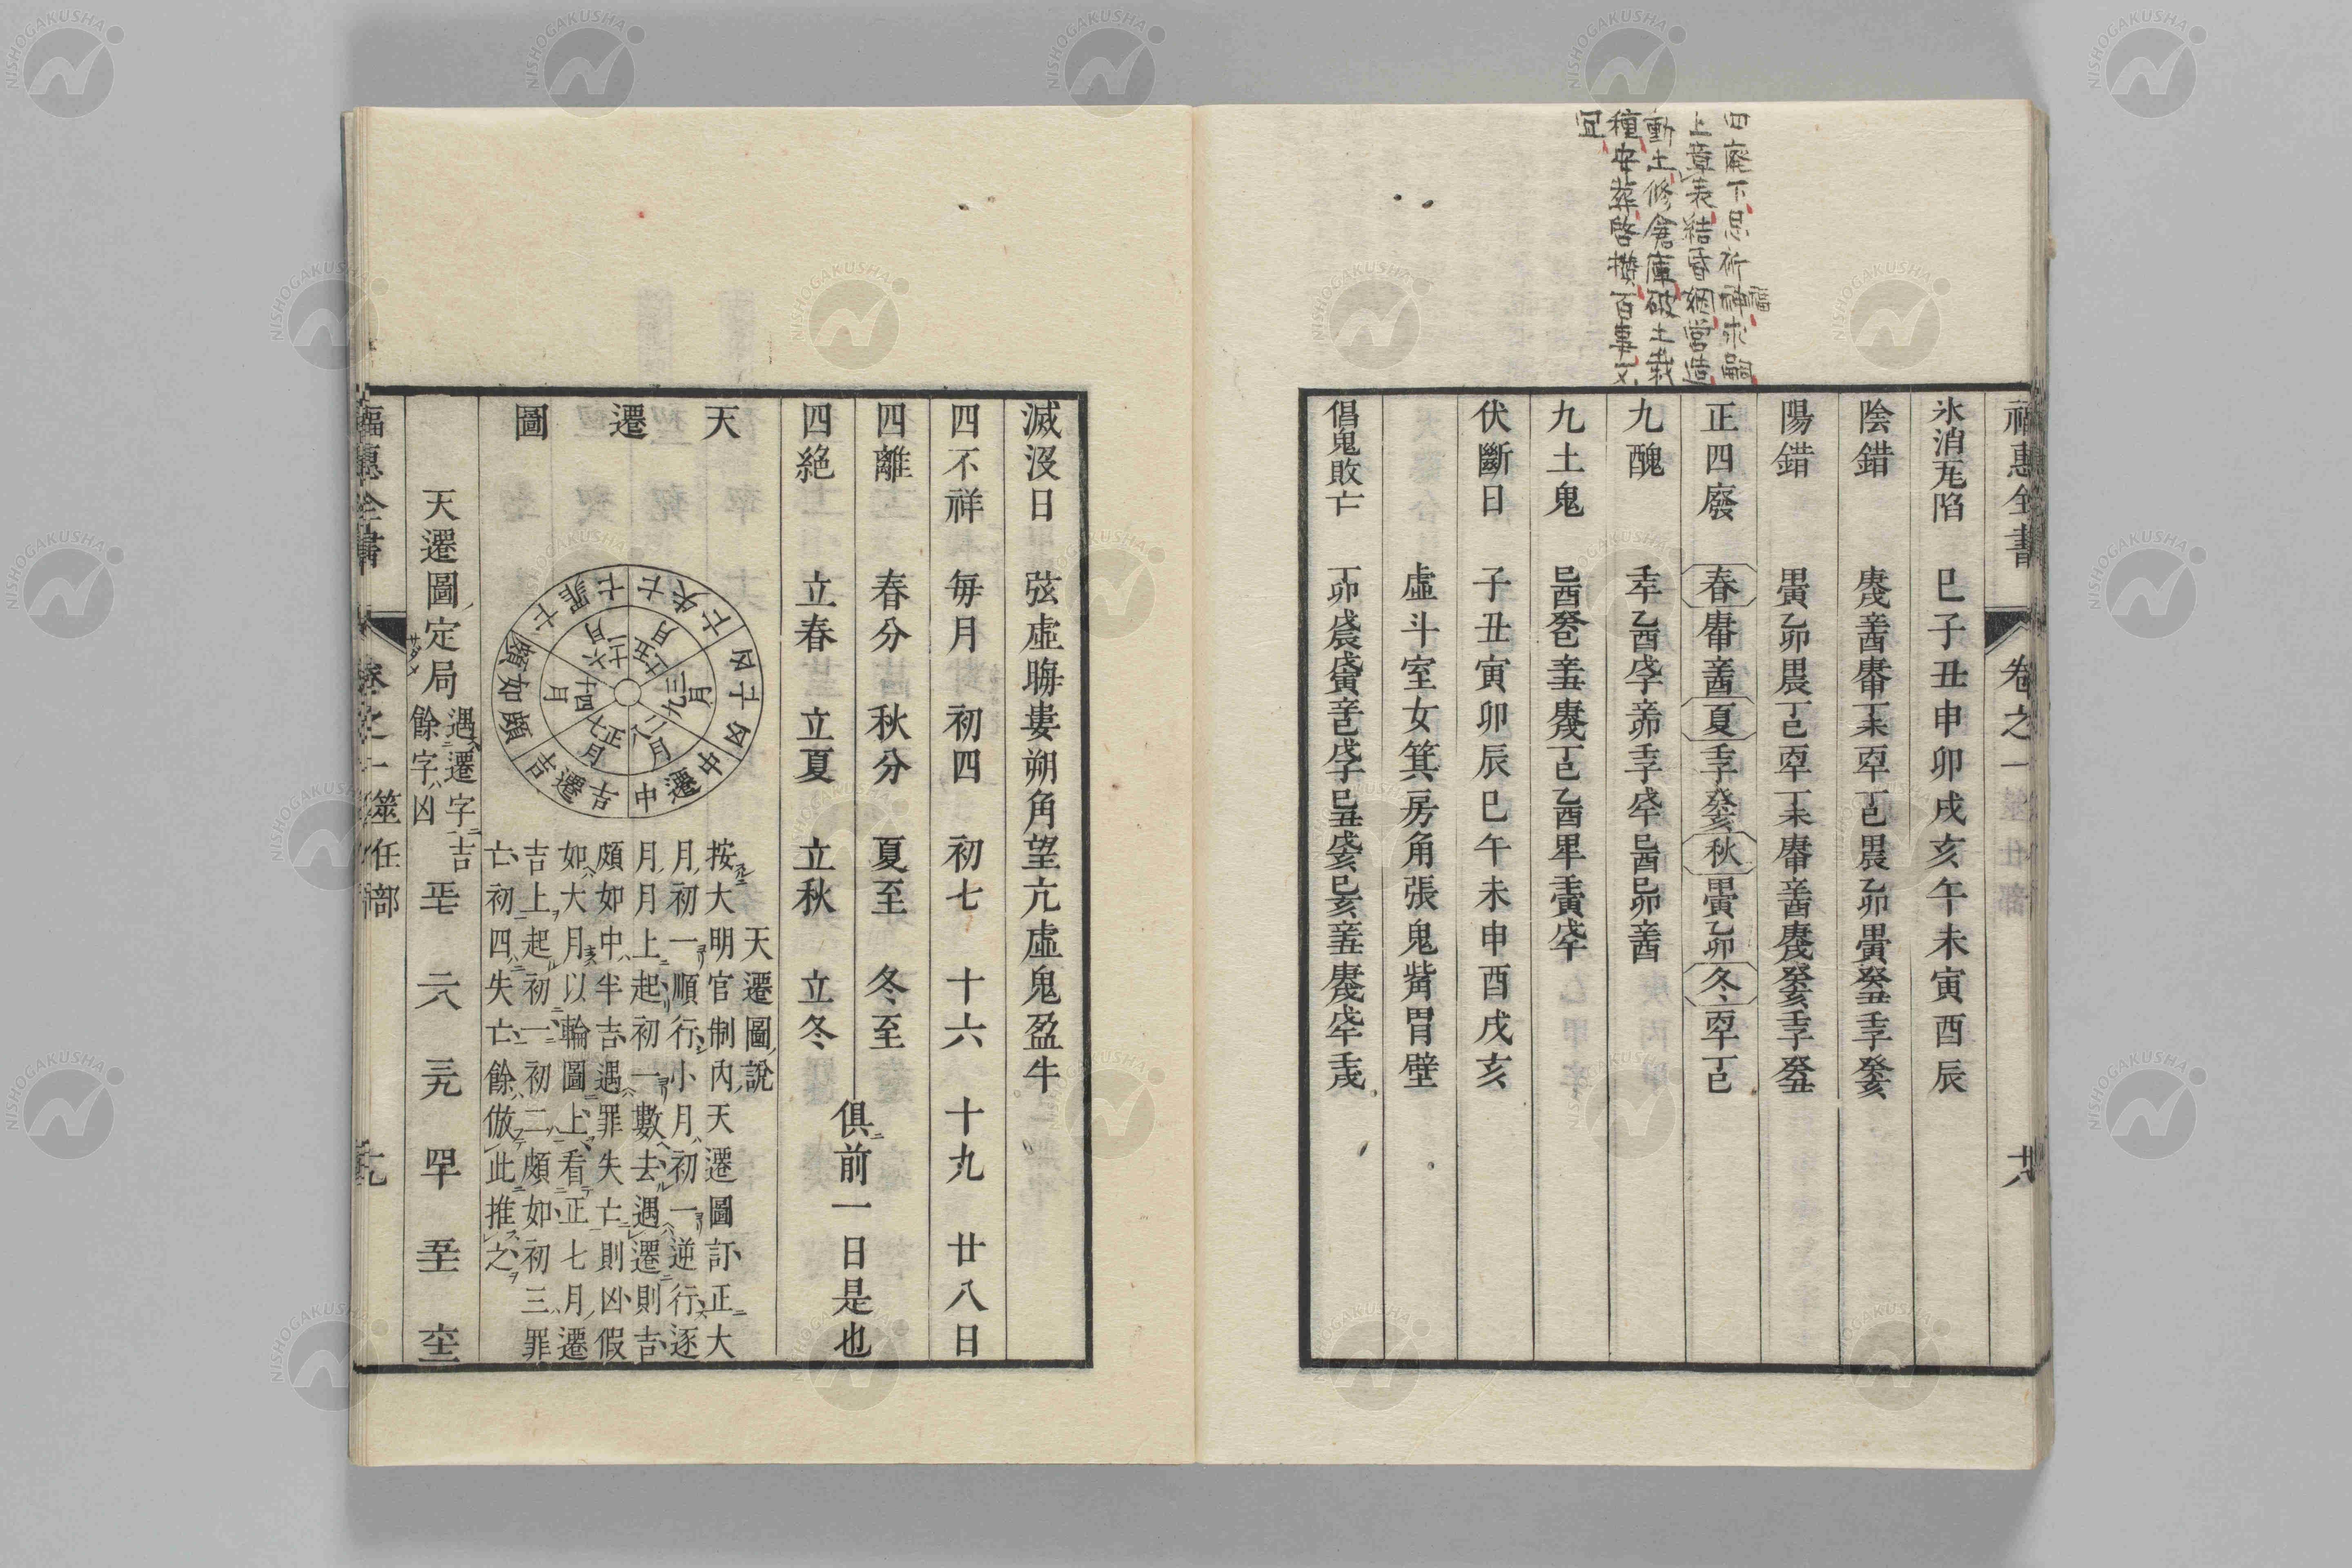 四廢下忌祈神福求嗣
上章表結昏姻營造
動土修倉庫破土栽
種安葬啓攢百事不
宜
福惠全書 卷之一 廿八
氷消瓦陷 巳子丑申卯戌亥午未寅酉辰
陰錯 庚戌辛酉庚申丁未丙午丁巳甲辰乙卯甲寅癸丑壬子癸亥
陽錯 甲寅乙卯甲辰丁巳丙午丁未庚申辛酉庚戌癸亥壬子癸丑
正四廢 春庚申辛酉夏壬子癸亥秋甲寅乙卯冬丙午丁巳
九醜 壬午乙酉戊子辛卯壬子戊午己酉己卯辛酉
九土鬼 己酉癸巳辛丑庚戌丁巳乙酉甲午壬寅戊午
伏斷日 子丑寅卯辰巳午未申酉戌亥
虛斗室女箕房角張鬼觜胃壁
倡鬼敗亡 丁卯戊辰戊寅辛巳戊子己丑戊亥己亥辛丑庚戌戊午壬戌
滅沒日 弦虛晦婁朔角望亢虛鬼盈牛
四不祥 每月初四 初七 十六 十九 廿八日
四離 春分 秋分 夏至 冬至
四絕 立春 立夏 立秋 立冬
俱前一日是也
天遷圖
亡失亡
囚子囚
中遷中
吉遷吉
頗如頗
亡罪亡
五十一月
三九月
二八月
正七月
四十月
六十二月
天遷圖說
按大明官制內天遷圖訂正大
月初一順行小月初一逆行逐
月月上起初一數去遇遷則吉
頗如中半吉遇罪失亡則凶假
如大月以輪圖上看正七月遷
吉上起初一初二頗如初三罪
亡初四失亡餘倣此推之
天遷圖定局 遇遷字吉
餘字凶
正七 二八 三九 四十 五十一 六十二
福惠全書 卷之一 筮仕部 廿九